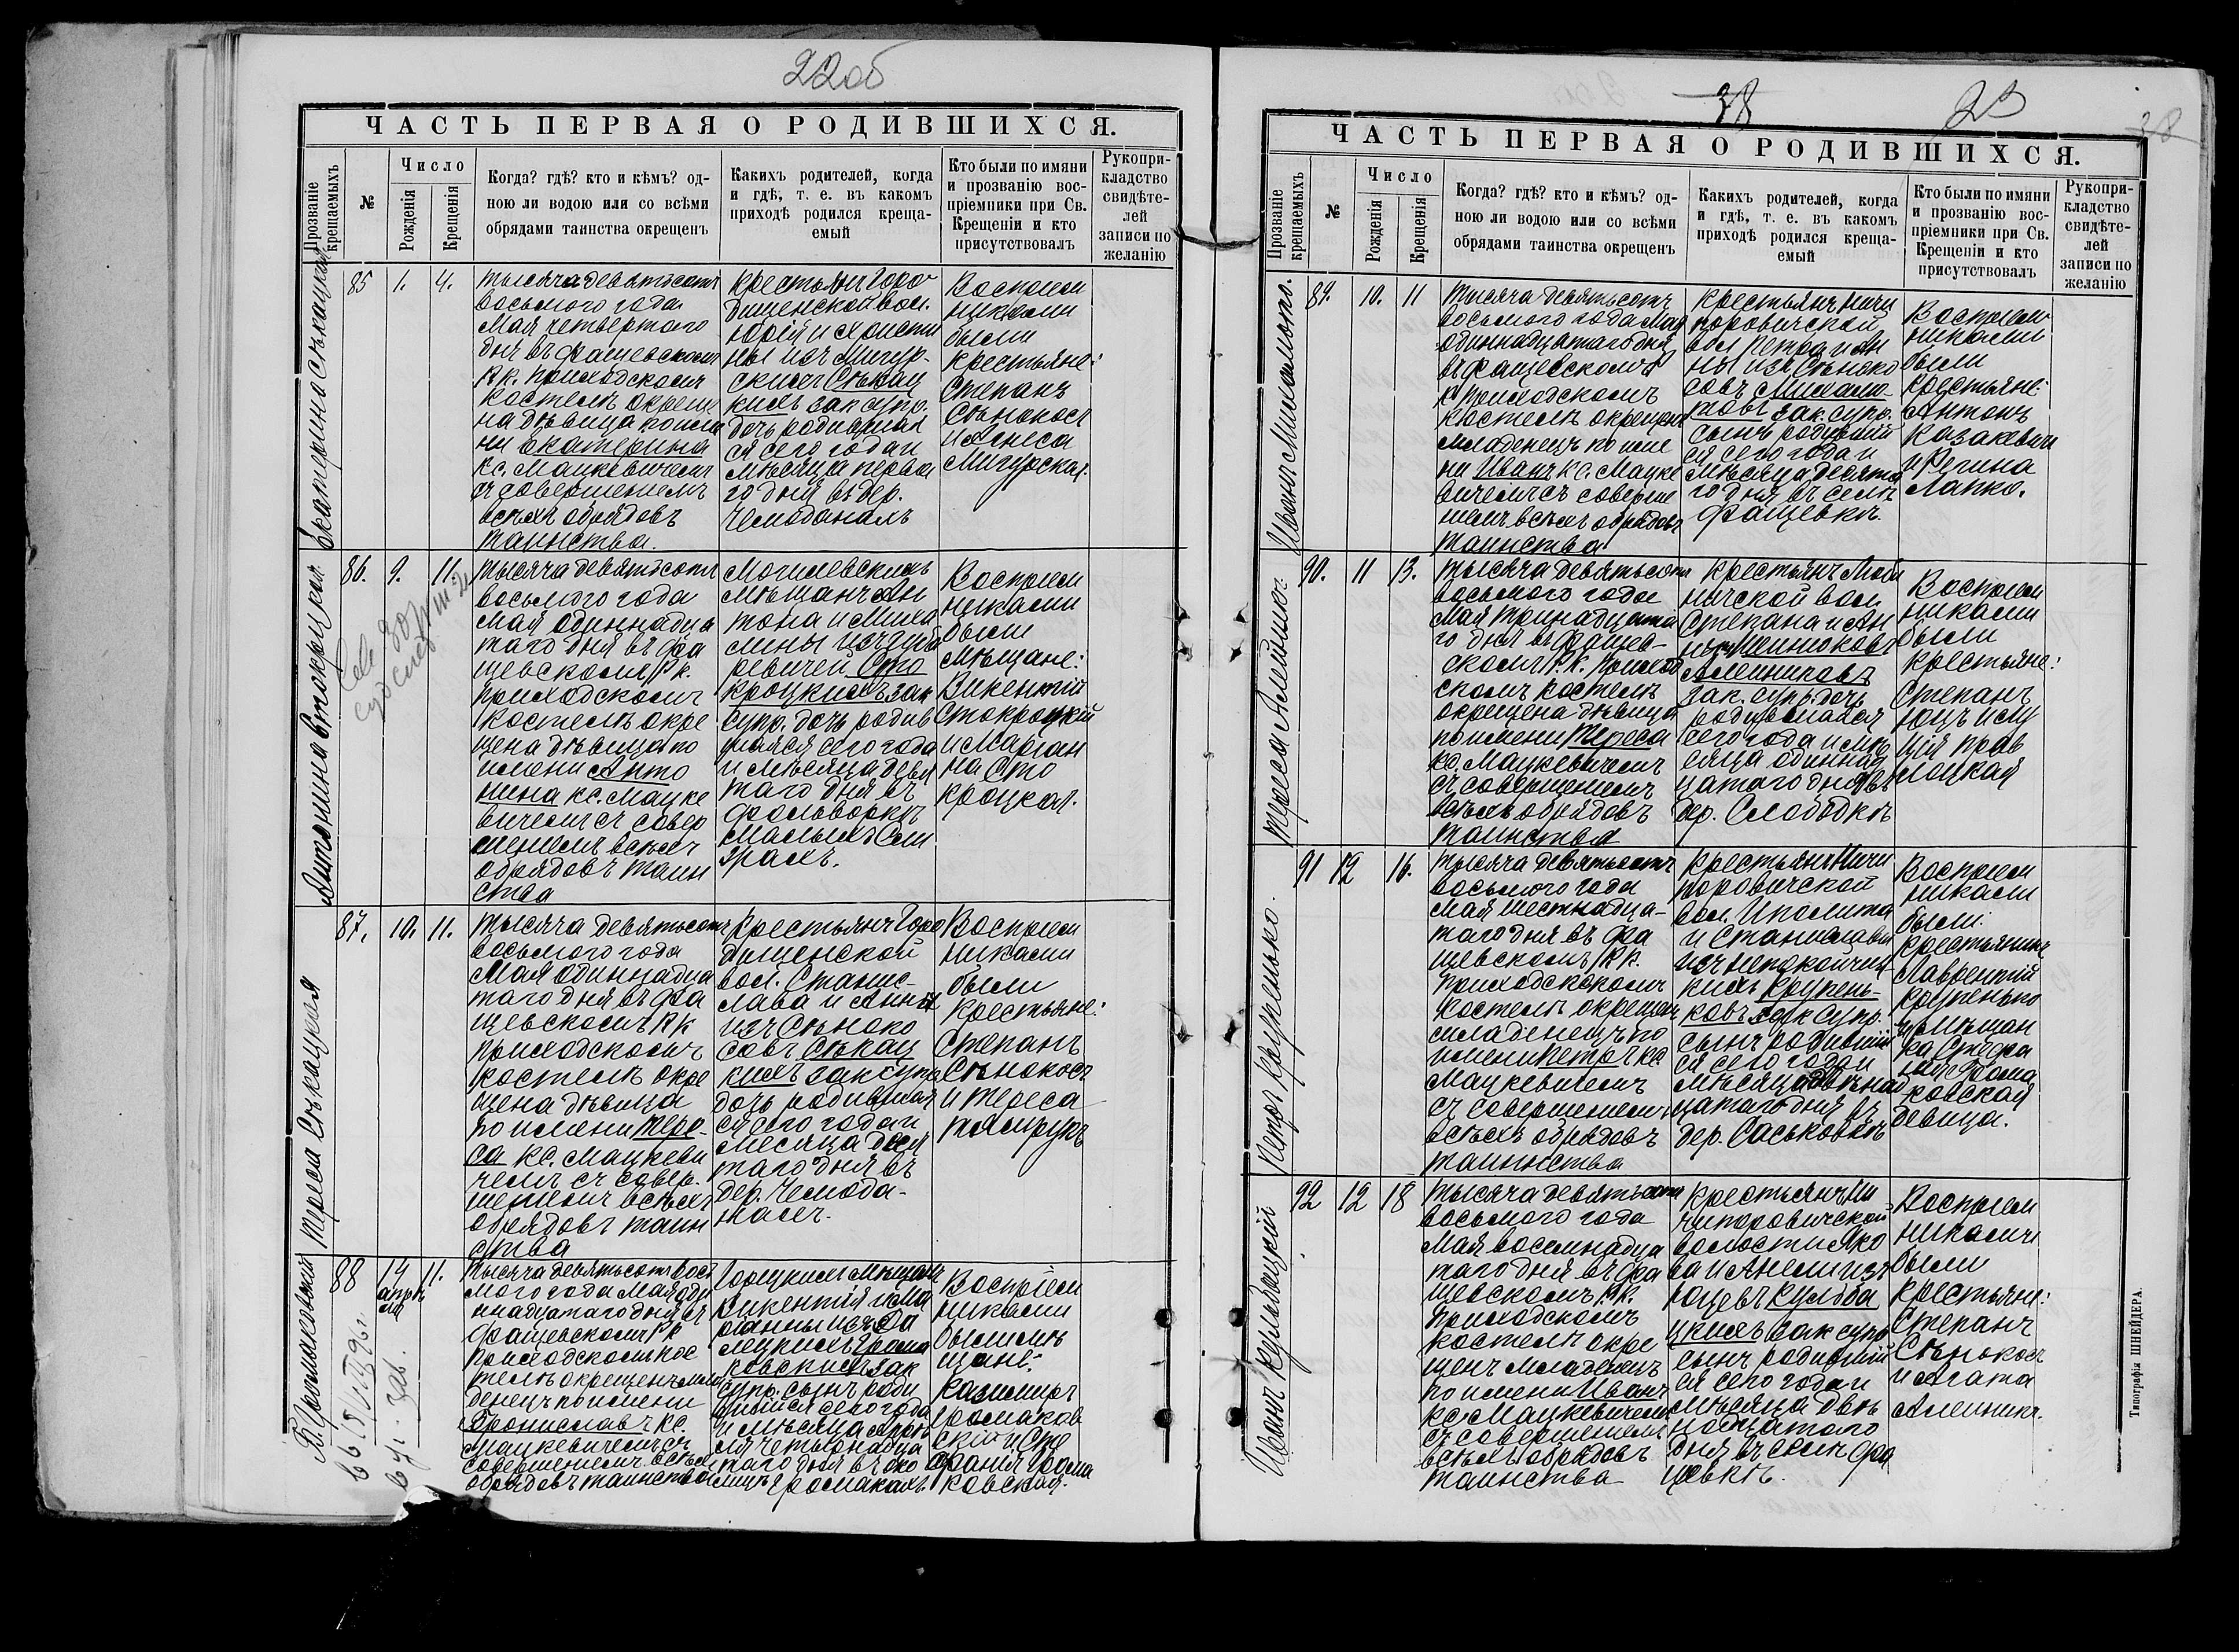 22об
ЧАСТЬ ПЕРВАЯ О РОДИВШИХСЯ.
Прозваніе крещаемыхъ
№
Число
Рожденія
Крещенія
Когда? гдѣ? кто и кѣмъ? од-
ною ли водою или со всѣми
обрядами таинства окрещенъ
Какихъ родителей, когда
и гдѣ, т. е. въ какомъ
приходѣ родился креща-
емый
Кто были по имяни
и прозванію вос-
пріемники при Св.
Крещеніи и кто
присутствовалъ
Рукопри-
кладство
свидѣте-
лей
записи по
желанію
Екатерина Сѣкацкая
85
1.
4.
Тысяча девятьсотъ
восьмого года
Мая четвертого
дня въ Фащевскомъ
Р.К. приходскомъ
костелѣ окреще
на дѣвица по име
ни Екатерина
кс. Мацкевичемъ
съ совершеніемъ
всѣхъ обрядовъ
таинства.
Крестьянъ Горо
дищенской вол.
Юрія и Христи
ны изъ Мигур-
скихъ Сѣкац
кихъ зак. супр.
дочь родившая
ся сего года и
мѣсяца перва
го дня въ дер.
Чемоданахъ
Воспріем
никами
были
крестьяне:
Степанъ
Сѣнокосъ
и Агнеса
Мигурская.
Антонина Стокроцкая
86.
9.
11.
Тысяча девятьсотъ
восьмого года
Мая одиннадца
таго дня въ Фа
щевскомъ Р.К.
приходскомъ
костелѣ окре
щена дѣвица по
имени Анто
нина кс. Мацке
вичемъ съ совер
шеніемъ всѣхъ
обрядовъ таин
ства
Могилевскихъ
мѣщанъ Ан
тона и Миха
лины изъ
ревичей Сто
кроцкихъ зак
супр. дочь родив
шаяся сего года
и мѣсяца девя
таго дня въ
фольваркѣ
Малыхъ
Воспріем
никами
были
мѣщане:
Викентій
Стокроцкій
и Маріан
на Сто
кроцкая.
Тереса Сѣкацкая
87.
10.
11.
Тысяча девятьсотъ
восьмого года
Мая одиннадца
таго дня въ Фа
щевскомъ Р.К
приходскомъ
костелѣ окре
щена дѣвица
по имени Тере-
са кс. Мацкеви
чемъ съ совер-
шеніемъ всѣхъ
обрядовъ таин
ства
Крестьянъ Горо
дищенской
вол. Станис-
лава и Анны
изъ Сѣноко
совъ Сѣкац
кихъ зак супр
дочь родившая
ся сего года и
месяца деся
таго дня въ
дер. Чемода-
нахъ.
Воспріем
никами
были
крестьяне:
Степанъ
Сѣнокосъ
и Тереса
Б. Громаковскій
88
14
апрѣ
ля
11.
Тысяча девятьсотъ вось
мого года Мая оди
ннадцатаго дня въ
Фащевскомъ Р.К
приходскомъ кос
телѣ окрещенъ мла
денецъ по имени
Брониславъ кс.
Мацкевичемъ съ
совершеніемъ всѣхъ
обрядовъ таинства
Горецкихъ мѣщанъ
Викентія и Ма
ріанны изъ
Грома
ковскихъ зак
супр. сынъ роди
вшійся сего года
и мѣсяца Апрѣ
ля четырнадца
таго дня въ око
лицѣ Громакахъ.
Воспріем
никами
были мѣ
щане:
Казиміръ
Громаков
скій и Сте
фанія Грома
ковская.
38
23
ЧАСТЬ ПЕРВАЯ О РОДИВШИХСЯ.
Прозваніе крещаемыхъ
№
Число
Рожденія
Крещенія
Когда? гдѣ? кто и кѣмъ? од-
ною ли водою или со всѣми
обрядами таинства окрещенъ
Какихъ родителей, когда
и гдѣ, т. е. въ какомъ
приходѣ родился креща-
емый
Кто были по имяни
и прозванію вос-
пріемники при Св.
Крещеніи и кто
присутствовалъ
Рукопри-
кладство
свидѣте-
лей
записи по
желанію
89.
10.
11
Тысяча девятьсотъ
восьмого года Мая
одиннадцатаго дня
въ Фащевскомъ Р
К приходскомъ
костелѣ окрещенъ
младенецъ по име
ни Иванъ кс. Мацке
вичемъ съ соверше
ніемъ всѣхъ обрядовъ
таинства
Крестьянъ Ничи
поровичской
вол Петра и Ан
ны изъ Сѣноко
совъ
зак. супр.
сынъ родивший
ся сего года и
мѣсяца десята
го дня въ селѣ
Фащевкѣ.
Воспріем
никами
были
крестьяне:
Антонъ
Казакевичъ
и Регина
Лапко.
90.
11
13.
Тысяча девятьсотъ
восьмого года
Мая тринадцата
го дня въ Фащев-
скомъ Р.К. приход
скомъ костелѣ
окрещена дѣвица
по имени Тереса
кс. Мацкевичемъ
съ совершеніемъ
всѣхъ обрядовъ
таинства
Крестьянъ
вол.
Степана и Ан
ны
Алейниковъ
зак. супр. дочь
родившаяся
сего года и мѣ
сяца одиннад
цатаго дня въ
дер. Слободкѣ
Воспріем
никами
были
крестьяне:
Степанъ
91
12
16.
Тысяча девятьсотъ
восьмого года
Мая шестнадца-
таго дня въ Фа
щевскомъ Р.К.
приходскомъ
костелѣ окрещенъ
младенецъ по
имени Петръ кс
Мацкевичемъ
съ совершеніемъ
всѣхъ обрядовъ
таинства
Крестьянъ Ничи
поровичской
вол. Иполита
и Станиславы
изъ Непокойчиц-
кихъ Крупень-
ковъ зак супр.
сынъ родивший
ся сего года и
мѣсяца двѣнад
цатаго дня въ
дер. Саськовкѣ
Воспріем
никами
были:
крестьянинъ
Лаврентій
Крупенько
и мѣщан
ка Стефа
нія Грома
ковская
девица.
Петръ Крупенько.
92
12
18
Тысяча девятьсотъ
восьмого года
Мая восемнадца
таго дня въ Фа
щевскомъ Р.К.
приходскомъ
костелѣ окре
щенъ младенецъ
по имени Иванъ
кс. Мацкевичемъ
съ совершеніемъ
всѣхъ обрядовъ
таинства
Крестьянъ Ни
чипоровичской
волости Яко
ва и Анели изъ
Кульба
цкихъ зак супр
сынъ родивший
ся сего года и
мѣсяца двѣ
надцатаго
дня въ селѣ Фа
щевкѣ.
Воспріем
никами
были
крестьяне:
Степанъ
Сѣнокосъ
и Агата
Алейникъ.
Иванъ Кульбацкій
Типографія ШНЕЙДЕРА.